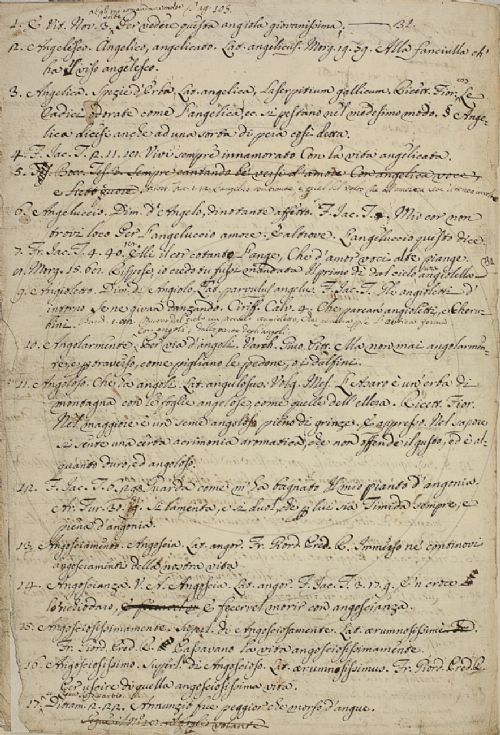 1. E Vit. Nov. 3. Per vedere questa angiola giovanissima,
2. Angelesco. Angelico, angelicato. Lat. angelicus. Morg. 19. 39. Alla fanciulla ch'
ha il viso angelesco.
3. Angelica. Spezie d'Erba Lat. angelica, Laserpitium gallicum. Ricett. Fior. Le
radici odorate come l'angelica, ec. si pestano nel medesimo modo. § Ange-
lica dicesi anche ad una sorta di pera così detta.
4. F. Jac. T. 2. 11. Vivi sempre innamorato Con la vita angelicata.
5. Bocc. Tes. Sempre cantando be' versi d'amore Con angelica voce,
6. Angeluccio. Dim. d'Angelo, dinotante affetto. F. Jac. T. Mio cor non
trovi loco Per l'angeluccio amore. E altrove. L'angeluccio questo dice
7. Fr. Jac. T. 4. 40. Elli il cor cotanto l'ange, Che d'amor voci alte piange.
8. Morg. 15. Rispose, io credo tu fussi mandata Il primo dì dal cielo angioletta
9. Angioletto. Dim. di Angiolo. Lat. parvulus angelus. F. Jac. T. Gli angioletti d'
intorno Se ne givan danzando. Ciriff. Calv. 4. Che parean angioletti, e Cheru-
bini.
10. Angolarmente. Per via d'angoli. Varch. Giuo. Pitt. Ma non mai angolarmen-
te, e a traverso, come pigliano le pedone, o i dalfini.
11. Angoloso. Che ha angoli. Lat. angulosus. Volg. Mes. L'Asaro è un'erba di
montagna con le foglie angolose, come quelle dell'ellera. Ricett. Fior.
Nel maggiore è un seme angoloso, pieno di grinze. E appresso. Nel sapore
si sente una certa acrimonia aromatica, che non offende il gusto, ed è al-
quanto duro, ed angoloso.
12. F. Jac. T. Guarda come m'ha bagnato Il mio pianto d'angonia.
Ar. Fur. 30. Si lamenta, e si duol, che di lui sia Timida sempre, e
piena d'angonia.
13. Angosciamento. Angoscia Lat. angor. Fr. Giord. Pred. R. Immerso ne' continovi
angosciamenti della nostra vita
14. Angoscianza. V. A. Angoscia Lat. angor. F. Jac. T. 3. 17. 9. E'n croce
lo inchiodaro, E fecerlo morir con angoscianza.
15. Angosciosissimamente. Superl. di Angosciosamente. Lat. ærumnosissime
Fr. Giord. Pred. R. Passavano la vita angosciosissimamente.
16. Angosciosissimo. Superl. di Angoscioso. Lat. ærumnosissimus. Fr. Giord. Pred. R.
Per uscire di quella angosciosissima vita.
17. Dittam. 2. 22. Annunzio fue peggior che morso d'angue.